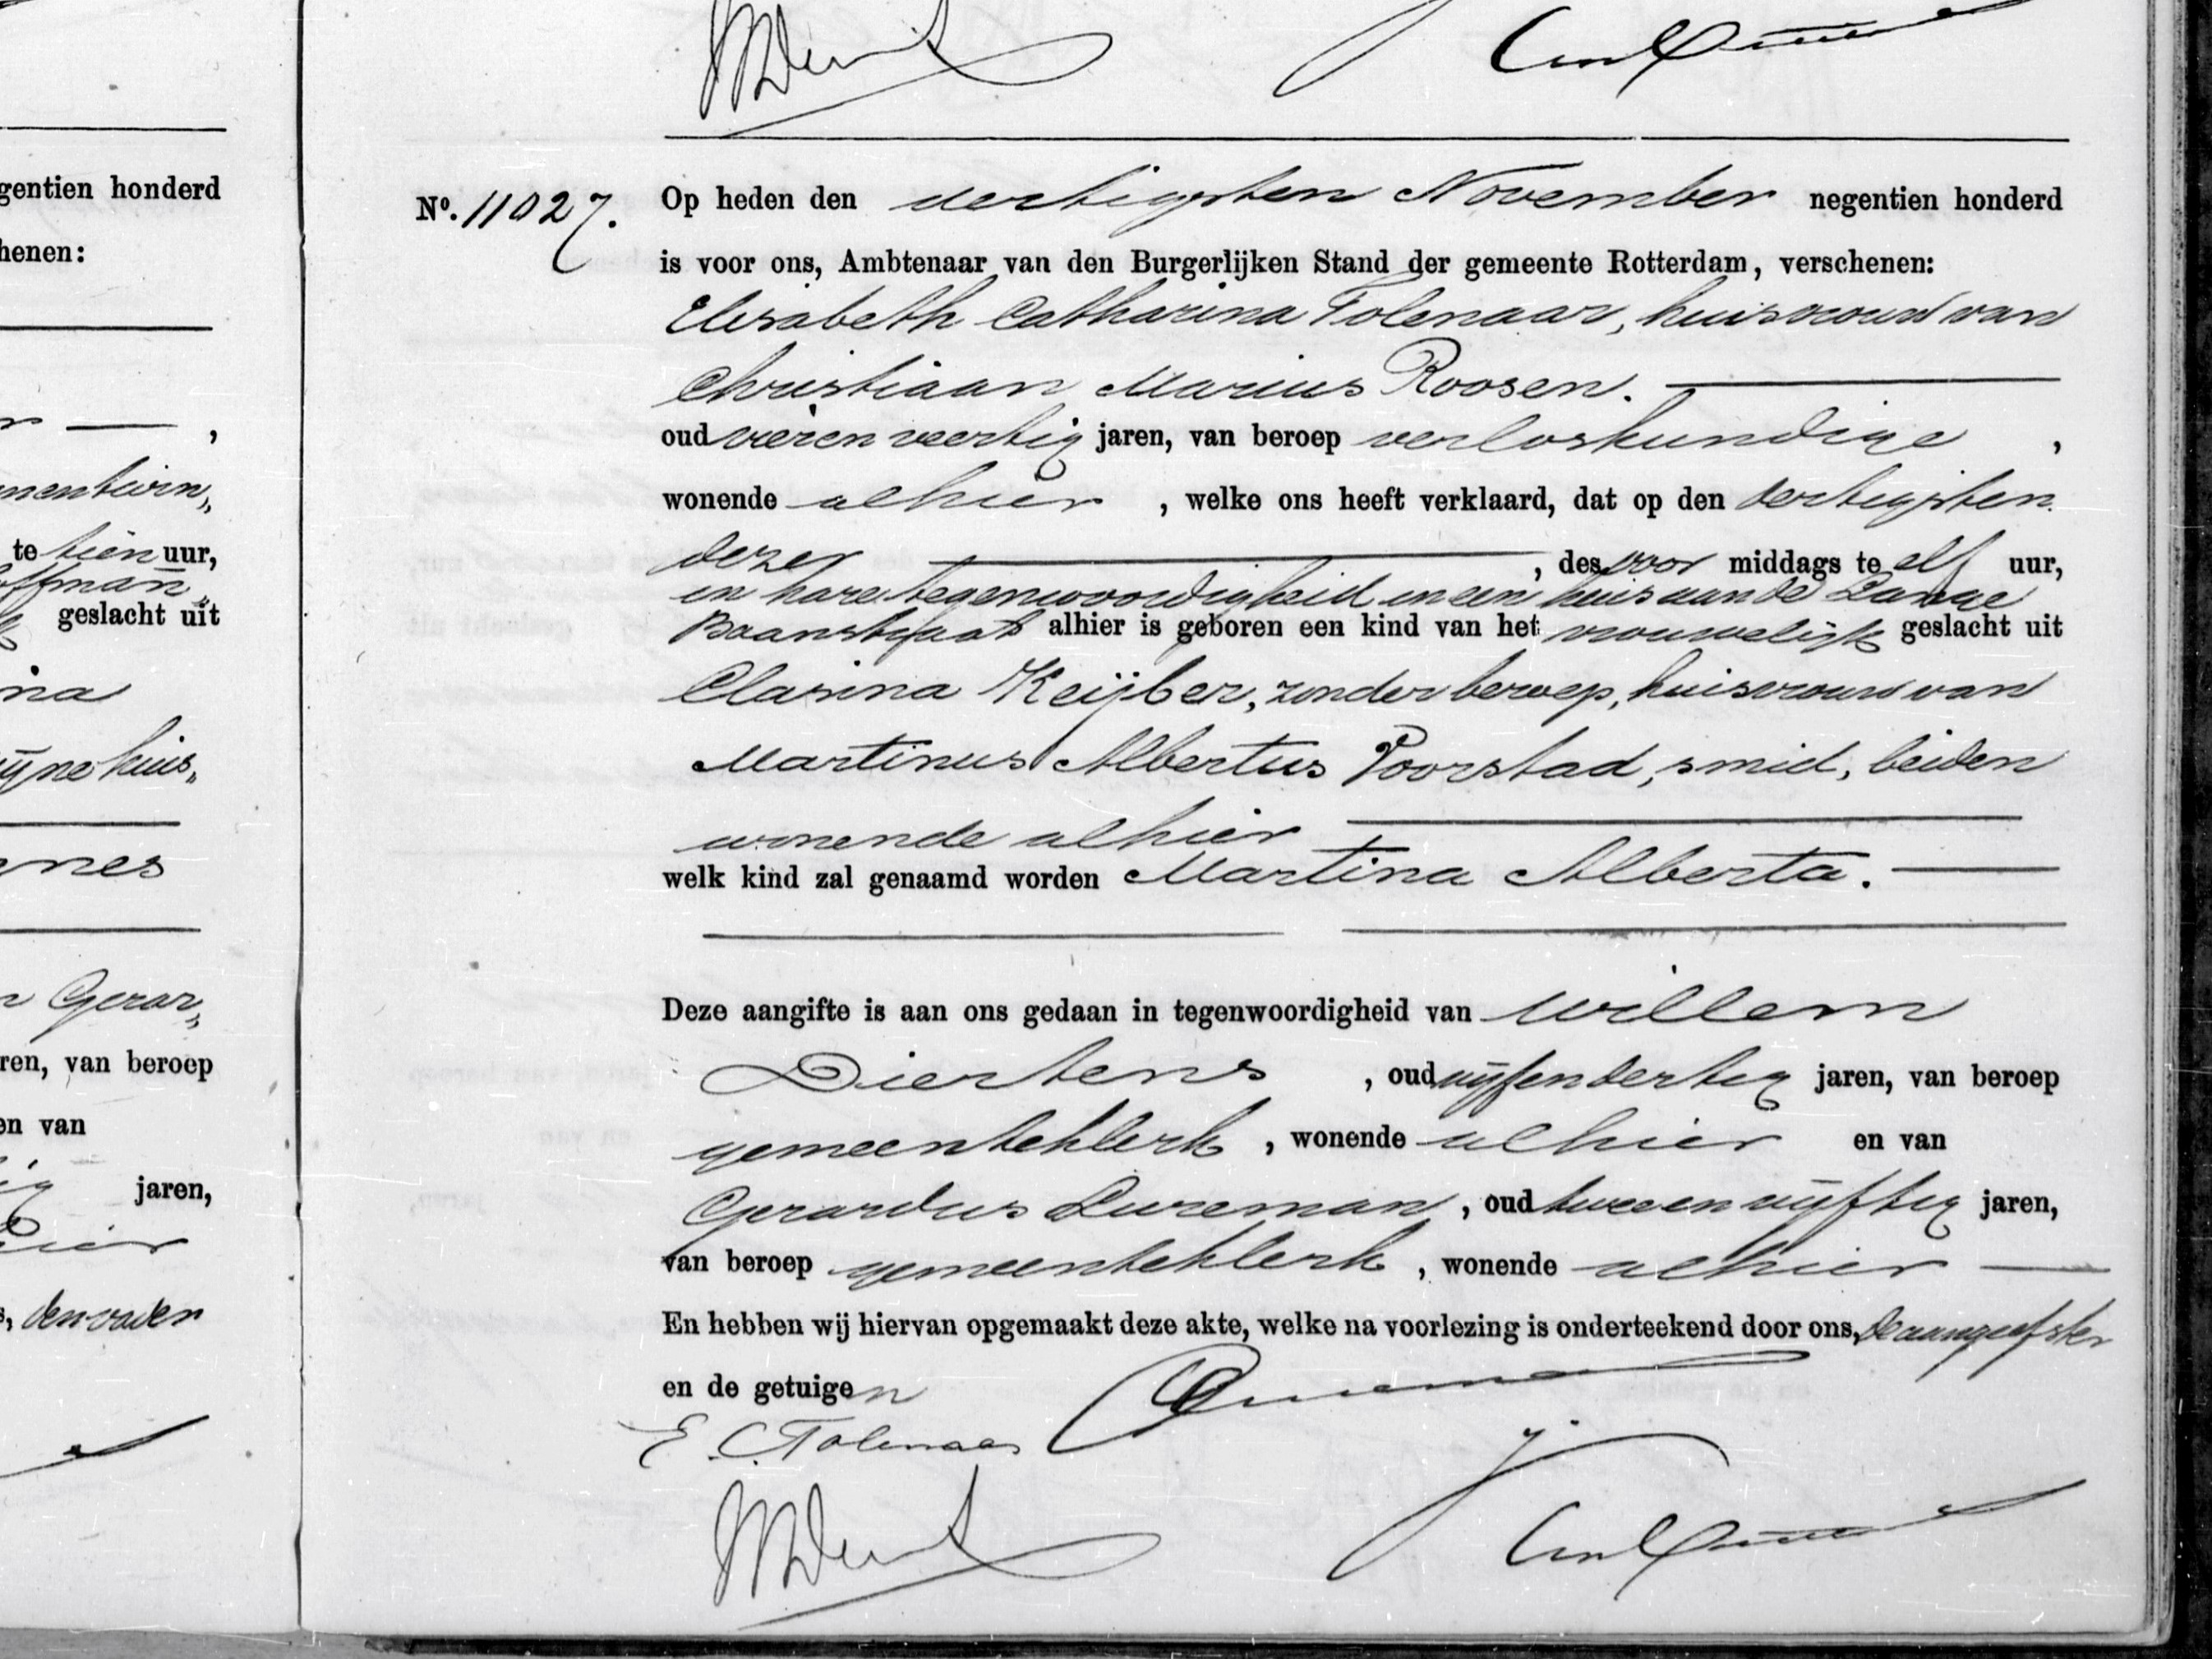 gentien honderd
henen:
te tien uur,
ffman„
geslacht uit
na
nes
Gerar„
ren, van beroep
en van
jaren,
s, den vader
No. 11027. Op heden den dertigsten November negentien honderd
is voor ons, Ambtenaar van den Burgerlijken Stand der gemeente Rotterdam, verschenen:
Elisabeth Catharina Tolenaar, huisvrouw van
Christiaan Marius Roosen.
oud vieren veertig jaren, van beroep verloskundige,
wonende alhier, welke ons heeft verklaard, dat op den dertigsten
dezer, des voor middags te elf uur,
in hare tegenwoordigheid in een huis aan de Lange
Baanstraat alhier is geboren een kind van het vrouwelijk geslacht uit
Clasina Keijber, zonder beroep, huisvrouw van
Martinus Albertus Poorstad, smid, beiden
wonende alhier
welk kind zal genaamd worden Martina Alberta.
Deze aangifte is aan ons gedaan in tegenwoordigheid van Willem
Diertens, oud vijfendertig jaren, van beroep
gemeenteklerk, wonende alhier en van
Gerardus Lureman, oud tweeenvijftig jaren,
van beroep gemeenteklerk, wonende alhier
En hebben wij hiervan opgemaakt deze akte, welke na voorlezing is onderteekend door ons, de aangeefster
en de getuigen
E. C. Tolenaar